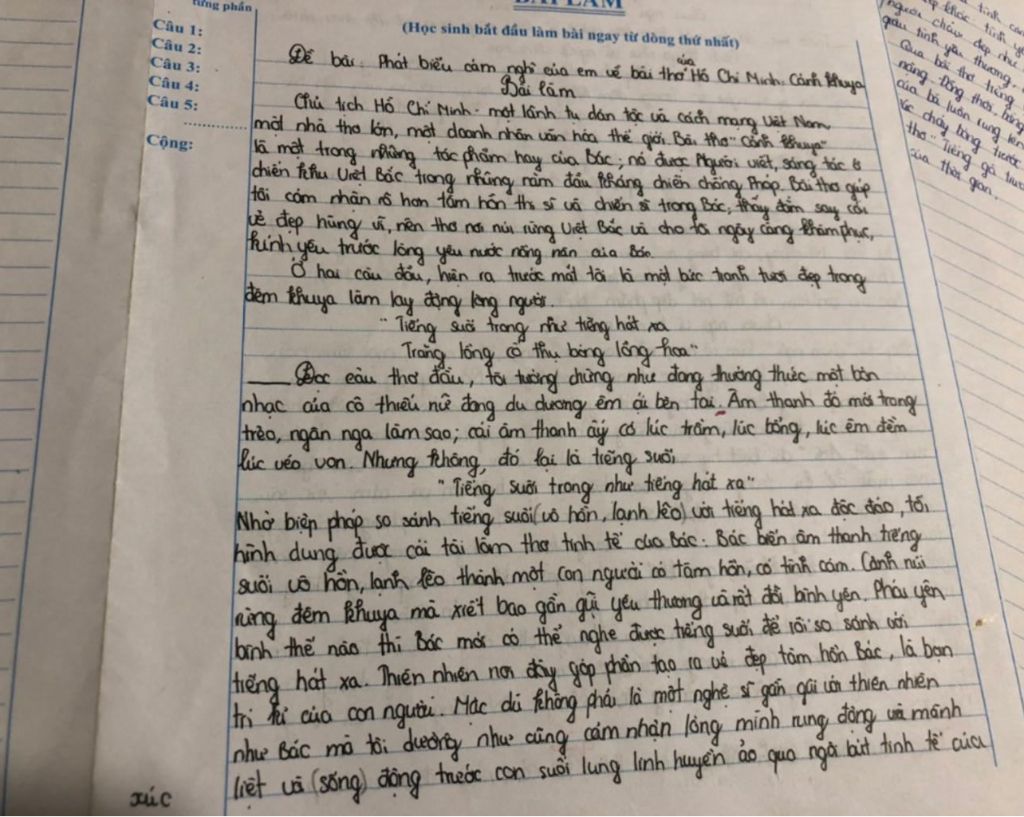 từng phần
Câu 1:
Câu 2:
Câu 3:
Câu 4:
Câu 5:
Cộng:
BÀI LÀM
(Học sinh bắt đầu làm bài ngay từ dòng thứ nhất)
Đề bài: Phát biểu cảm nghĩ của em về bài thơ của Hồ Chí Minh: Cảnh khuya
Bài làm
Chủ tịch Hồ Chí Minh - một lãnh tụ dân tộc và cách mạng Việt Nam
một nhà thơ lớn, một doanh nhân văn hóa thế giới. Bài thơ "Cảnh khuya"
là một trong những tác phẩm hay của Bác; nó được Người viết, sáng tác ở
chiến khu Việt Bắc trong những năm đầu kháng chiến chống Pháp. Bài thơ giúp
tôi cảm nhận rõ hơn tâm hồn thi sĩ và chiến sĩ trong Bác, thấy đắm say cái
vẻ đẹp hùng vĩ, nên thơ nơi núi rừng Việt Bắc và cho tôi ngày càng khâm phục,
kính yêu trước lòng yêu nước nồng nàn của Bác.
Ở hai câu đầu, hiện ra trước mắt tôi là một bức tranh tươi đẹp trong
đêm khuya làm lay động lòng người.
"Tiếng suối trong như tiếng hát xa
Trăng lồng cổ thụ bóng lồng hoa"
Đọc câu thơ đầu, tôi tưởng chừng như đang thưởng thức một bản
nhạc của cô thiếu nữ đang du dương êm ái bên tai. Âm thanh đó mới trong
trẻo, ngân nga làm sao; cái âm thanh ấy có lúc trầm, lúc bổng, lúc êm đềm
lúc véo von. Nhưng không, đó lại là tiếng suối
"Tiếng suối trong như tiếng hát xa"
Nhờ biện pháp so sánh tiếng suối (vô hồn, lạnh lẽo) với tiếng hát xa độc đáo, tôi
hình dung được cái tài làm thơ tinh tế của Bác: Bác biến âm thanh tiếng
suối vô hồn, lạnh lẽo thành một con người có tâm hồn, có tình cảm. Cảnh núi
rừng đêm khuya mà xiết bao gần gũi yêu thương và rất đỗi bình yên. Phải yên
bình thế nào thì Bác mới có thể nghe được tiếng suối để rồi so sánh với
tiếng hát xa. Thiên nhiên nơi đây góp phần tạo ra vẻ đẹp tâm hồn Bác, là bạn
tri kỉ của con người. Mặc dù không phải là một nghệ sĩ gần gũi với thiên nhiên
như Bác mà tôi dường như cũng cảm nhận lòng mình rung động và mãnh
liệt và (sống) động trước con suối lung linh huyền ảo qua ngòi bút tinh tế của
xúc